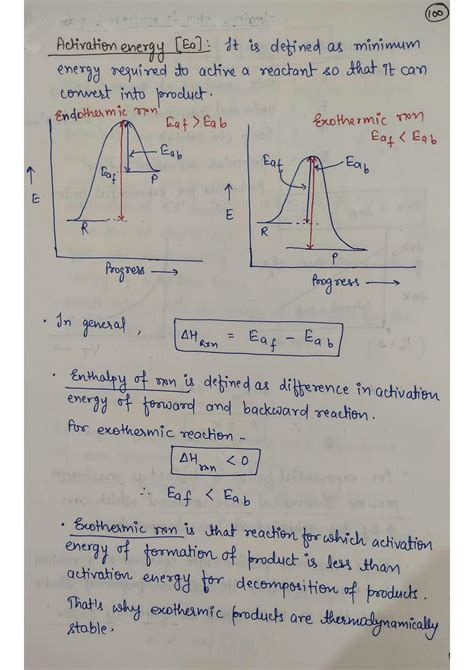 100
Activation energy [Ea]: It is defined as minimum
energy required to active a reactant so that it can
convert into product.
Endothermic rxn
Eaf > Eab
Exothermic rxn
Eaf < Eab
Eab
Eaf
P
R
E
Progress →
Eaf
Eab
E
R
P
Progress →
• In general,
ΔHRxn = Eaf - Eab
• Enthalpy of rxn is defined as difference in activation
energy of forward and backward reaction.
For exothermic reaction -
ΔHrxn < 0
∴ Eaf < Eab
• Exothermic rxn is that reaction for which activation
energy of formation of product is less than
activation energy for decomposition of products.
That's why exothermic products are thermodynamically
stable.